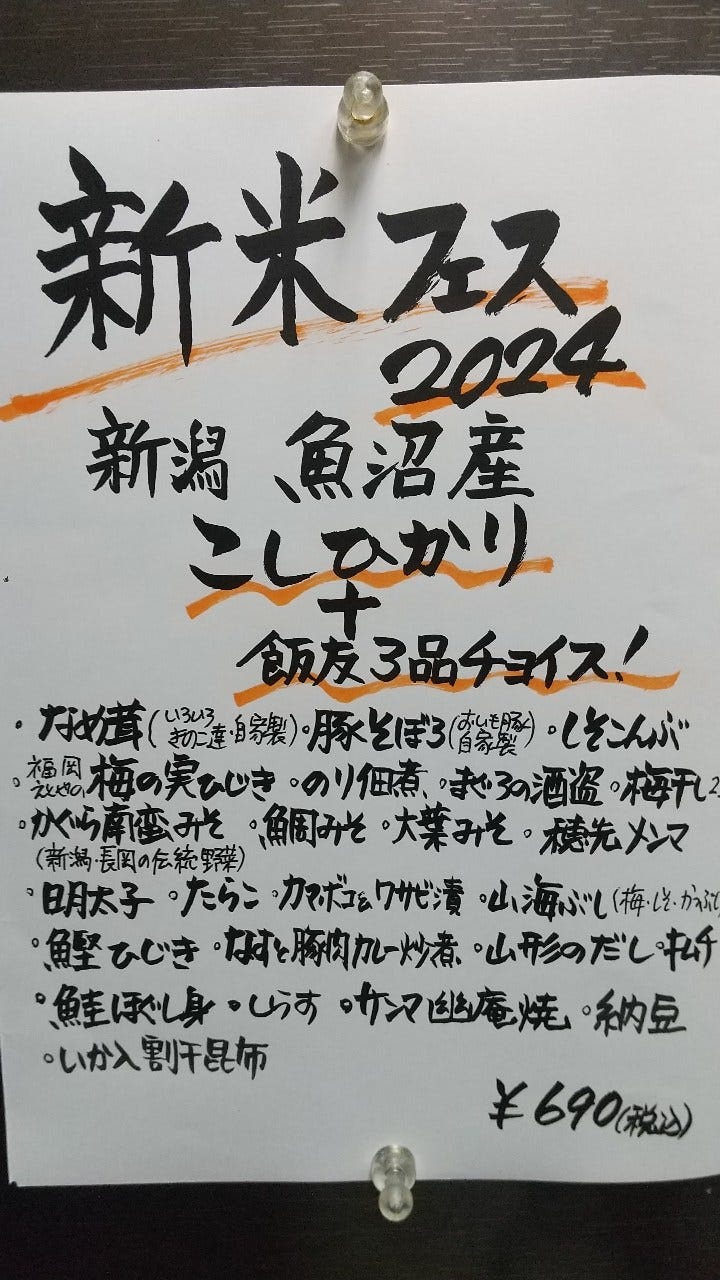 新米フェス
2024
新潟 魚沼産
こしひかり
+
飯友3品チョイス!
・なめ茸(いろいろきのこ達・自家製)・豚そぼろ(おいも豚自家製)・しそこんぶ
・福岡えとやの梅の実ひじき・のり佃煮・まぐろの酒盗・梅干し2
・かぐら南蛮みそ・鯛みそ・大葉みそ・穂先メンマ
(新潟・長岡の伝統野菜)
・明太子・たらこ・カマボコ&ワサビ漬・山海ぶし(梅・しそ・かつぶし
・鰹ひじき・なすと豚肉カレー炒煮・山形のだし・キムチ
・鮭ほぐし身・しらす・サンマ幽庵焼・納豆
・いか入割干昆布
¥690(税込)